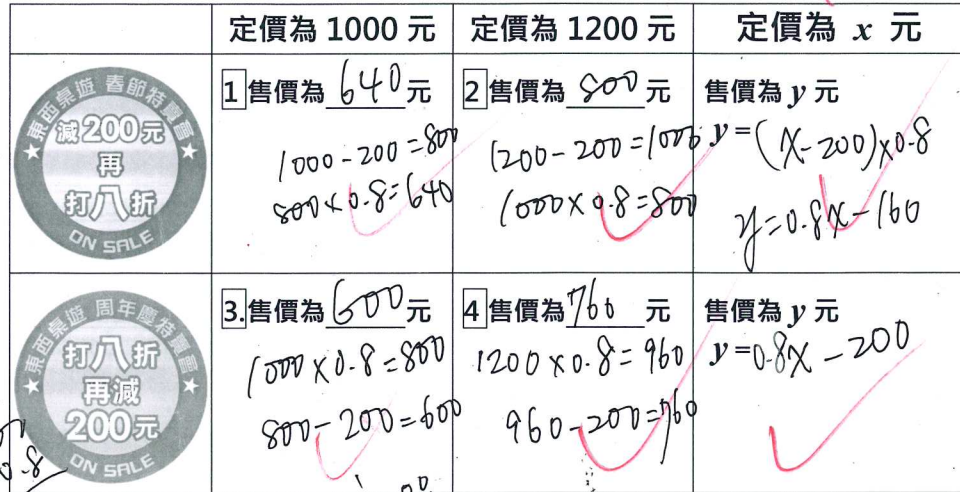 定價為 1000 元
定價為 1200 元
定價為 x 元
東西桌遊 春節特賣會
減200元
再
打八折
ON SALE
1 售價為 640 元
1000-200=800
800×0.8=640
2 售價為 800 元
1200-200=1000
1000×0.8=800
售價為 y 元
y=(x-200)×0.8
y=0.8x-160
東西桌遊 周年慶特賣會
打八折
再減
200元
ON SALE
0.8
3. 售價為 600 元
1000×0.8=800
800-200=600
4 售價為 760 元
1200×0.8=960
960-200=760
售價為 y 元
y=0.8x-200